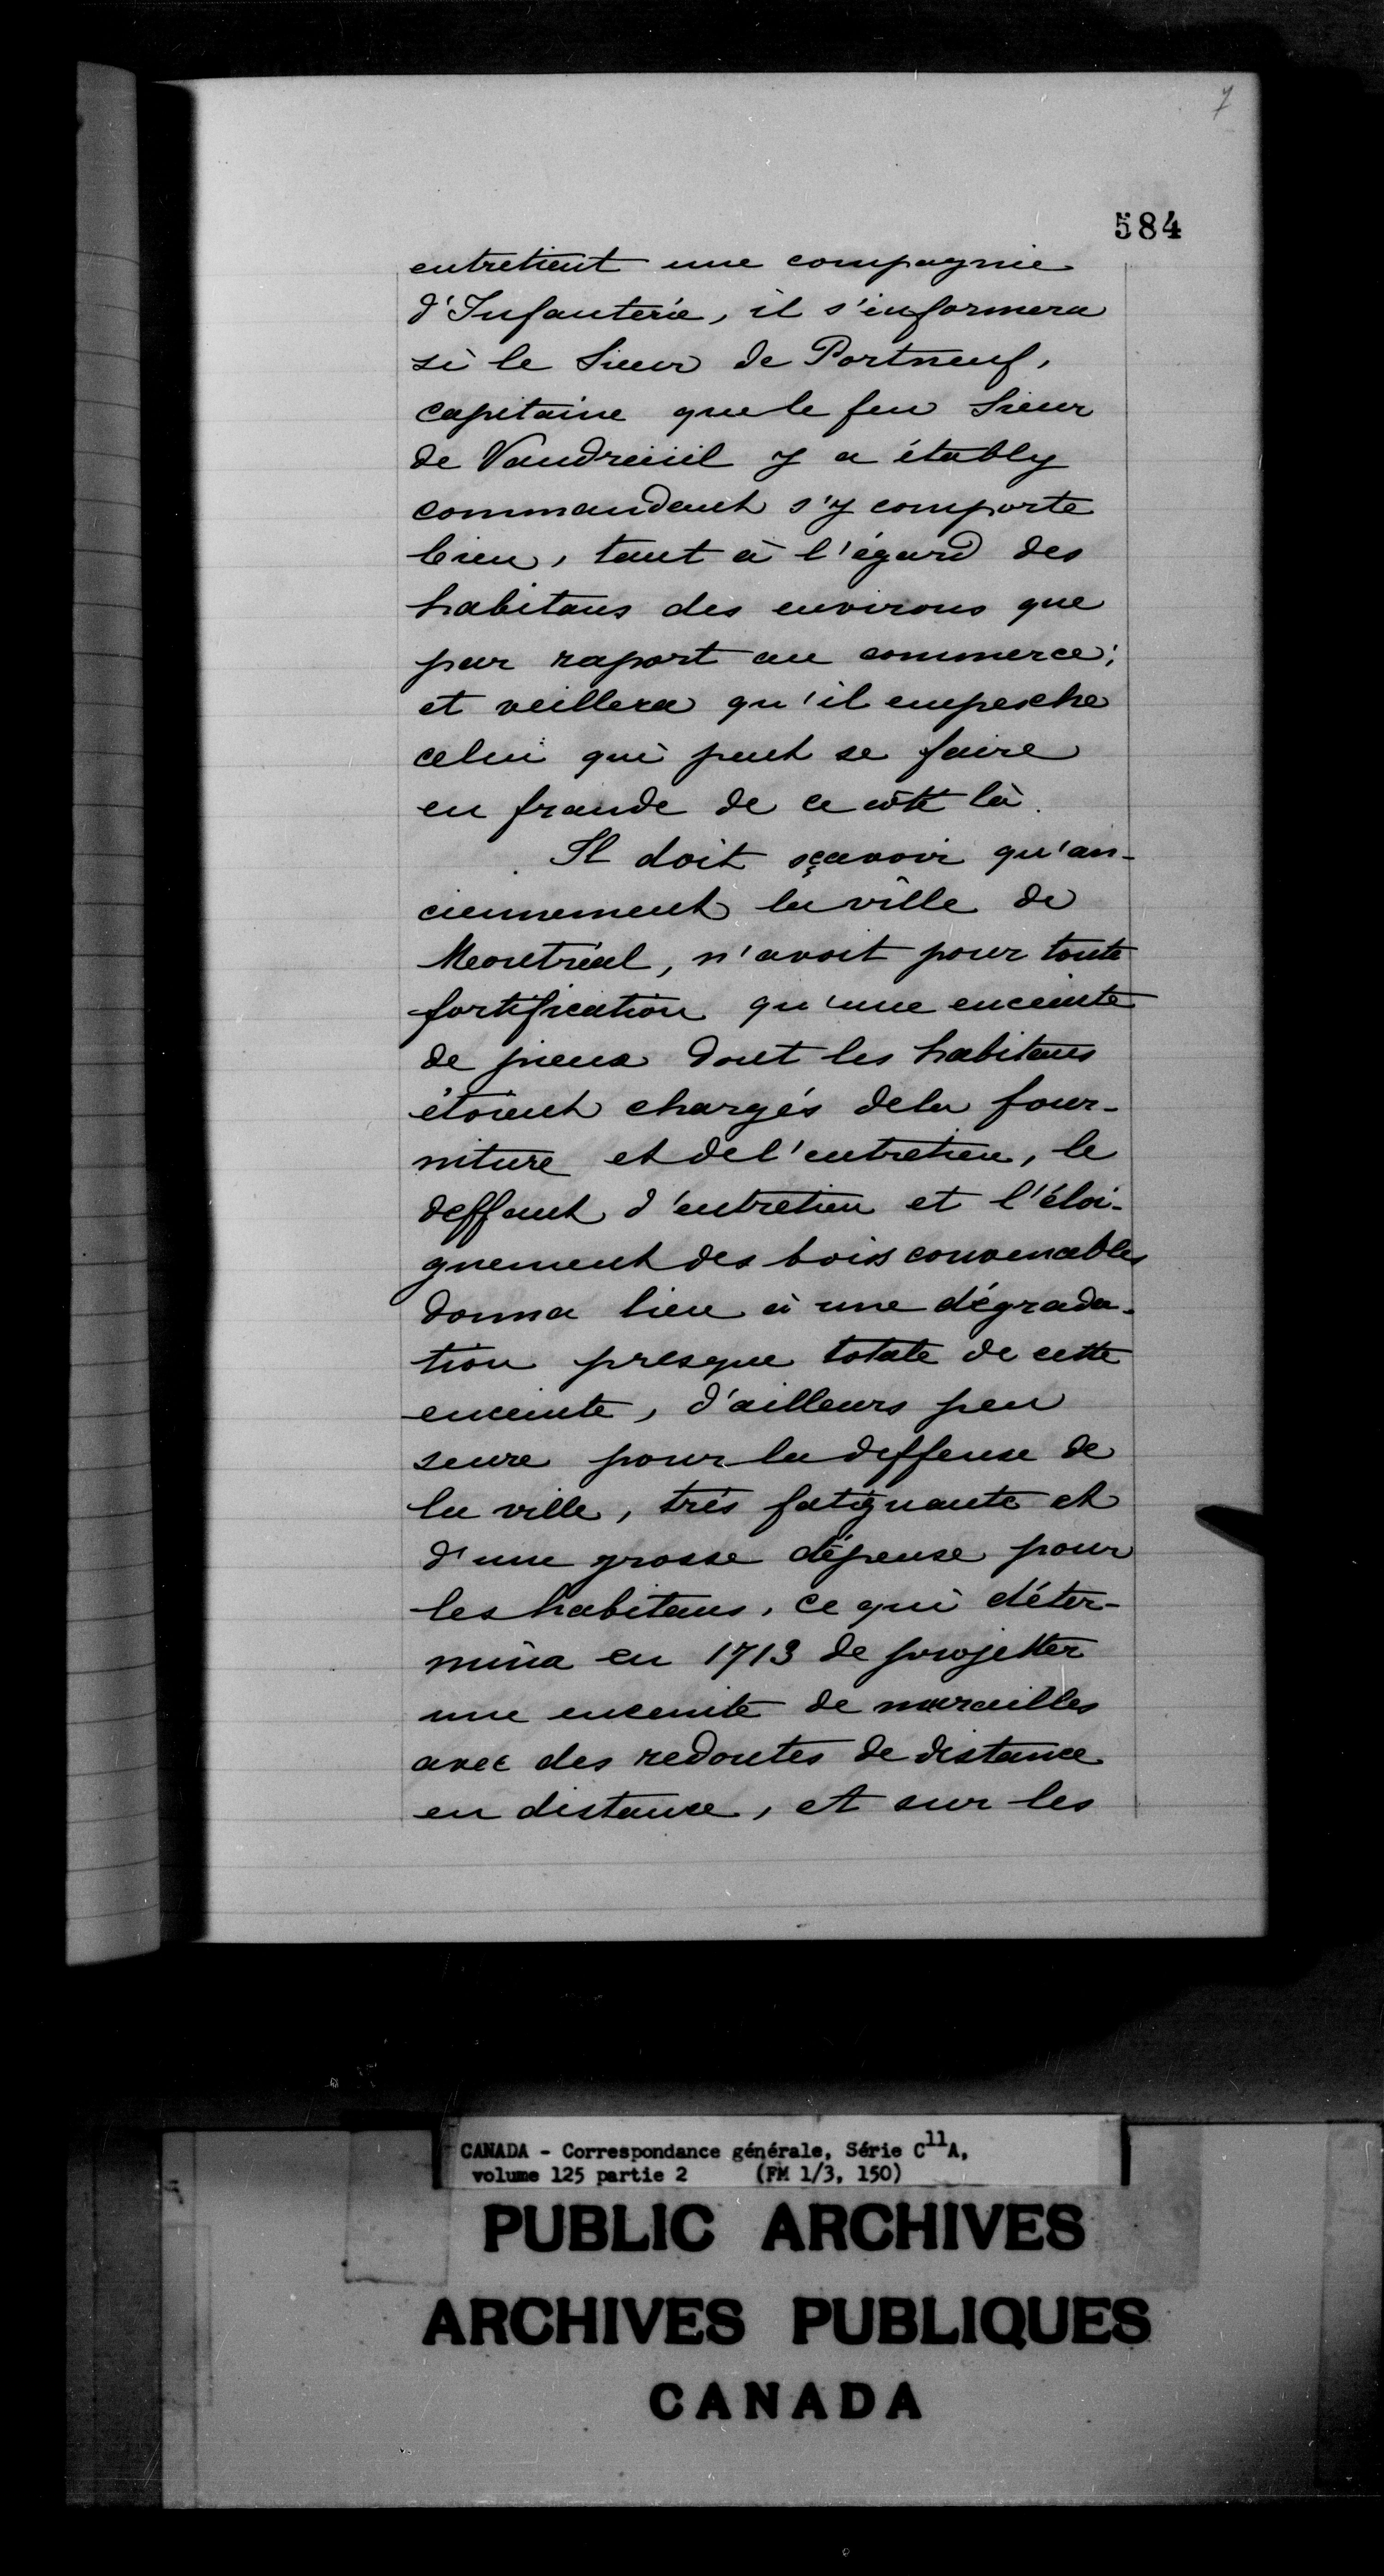 7
584
entretient une compagnie
d'Infanterie, il s'informera
si le Sieur de Portneuf,
capitaine que le feu Sieur
de Vaudreüil y a étably
commandant s'y comporte
bien, tant à l'égard des
habitans des environs que
par raport au commerce;
et veillera qu'il empesche
celui qui peut se faire
en fraude de ce côté là.
Il doit sçavoir qu'an-
ciennement la ville de
Montréal, n'avoit pour toute
fortification qu'une enceinte
de pieux dont les habitans
étoient chargés dela four-
niture et de l'entretien, le
deffaut d'entretien et l'éloi-
gnement des bois convenables
donna lieu à une dégrada-
tion presque totale de cette
enceinte, d'ailleurs peu
seure pour la deffense de
la ville, très fatiguante et
d'une grosse dépense pour
les habitans, ce qui déter-
mina en 1713 de projetter
une enceinte de murailles
avec des redoutes de distance
en distance, et sur les
CANADA - Correspondance générale, Série C11A,
volume 125 partie 2 (FM 1/3, 150)
PUBLIC ARCHIVES
ARCHIVES PUBLIQUES
CANADA